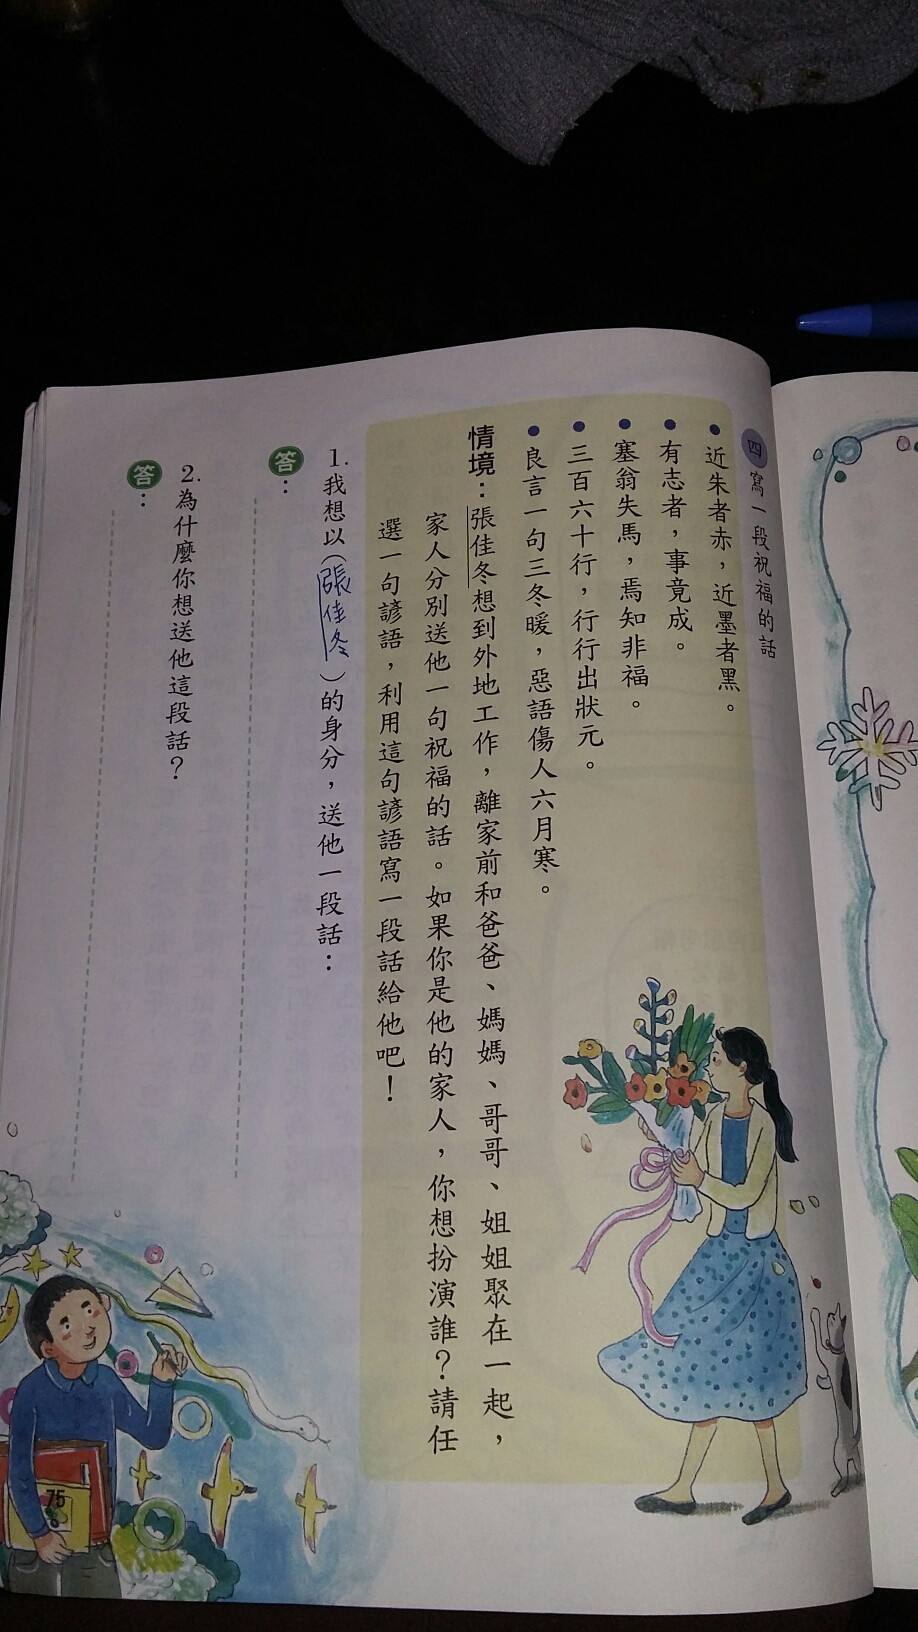 四 寫一段祝福的話
●近朱者赤，近墨者黑。
●有志者，事竟成。
●塞翁失馬，焉知非福。
●三百六十行，行行出狀元。
●良言一句三冬暖，惡語傷人六月寒。
情境：張佳冬想到外地工作，離家前和爸爸、媽媽、哥哥、姐姐聚在一起，
家人分別送他一句祝福的話。如果你是他的家人，你想扮演誰？請任
選一句諺語，利用這句諺語寫一段話給他吧！
1.我想以（張佳冬）的身分，送他一段話：
答：
2.為什麼你想送他這段話？
答：
75